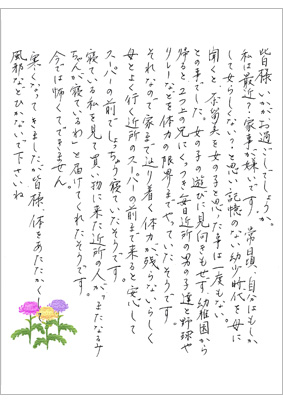 皆様いかがお過ごしでしょうか。
私は最近？家事が嫌いです。常頃、自分はもしか
して女らしくない？と思い記帳のない幼少時代を母に
聞くと「奈留美を女の子と思った事は一度もない」
との事でした。女の子の遊びに見向きもせず幼稚園から
帰ると2つ上の兄にくっつき毎日近所の男の子達と野球や
リレーなどを体力の限界までやっていたそうです。
それなので家まで辿り着く体力が残らないらしく
母とよく行く近所のスーパーの前まで来ると安心して
スーパーの前でしょっちゅう寝ていたそうです。
寝ている私を見て買い物に来た近所の人が「またなるみ
ちゃんが寝ているわ」と届けてくれたそうです。
今では怖くてできません。
寒くなってきましたが皆様、体をあたたかくし
風邪などひかないで下さいね